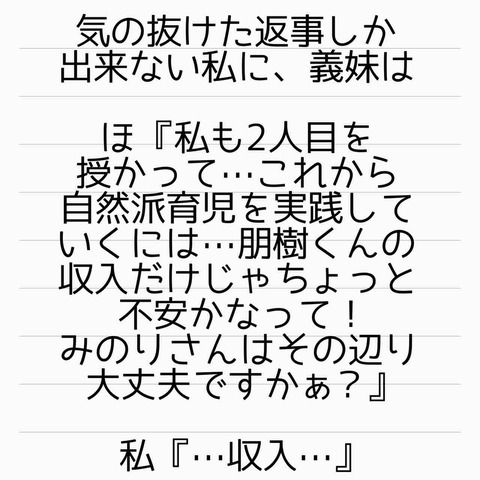 気の抜けた返事しか
出来ない私に、義妹は
ほ『私も2人目を
授かって…これから
自然派育児を実践して
いくには…朋樹くんの
収入だけじゃちょっと
不安かなって！
みのりさんはその辺り
大丈夫ですかぁ？』
私『…収入…』